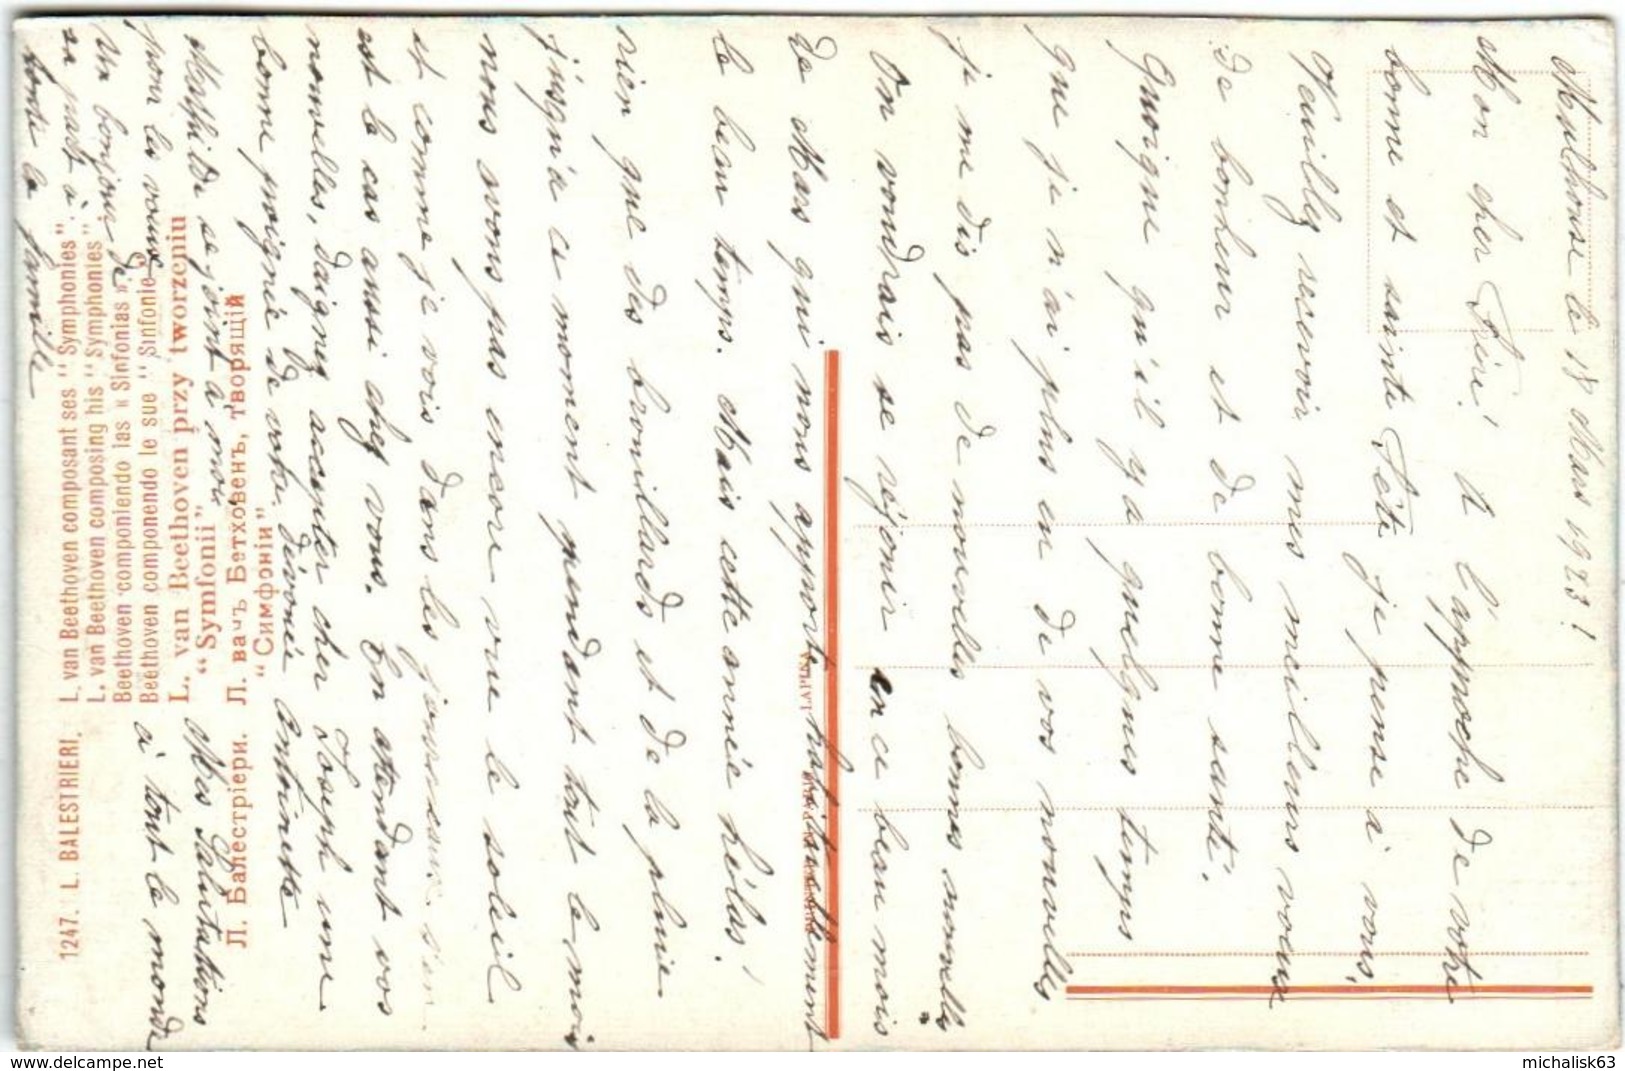 Mulhouse le 18 Mars 1923!
Mon cher Père! A l'approche de votre
bonne et sainte Fête je pense à vous,
Veuillez recevoir mes meilleurs voeux
de bonheur et de bonne santé.
Quoique qu'il y a quelques temps
que je n'ai plus eu de vos nouvelles
je me dis pas de nouvelles bonnes nouvelles
On voudrais se réjouir en ce beau mois
de Mars qui nous apporte habituellement
le beau temps. Mais cette année hélas!
rien que des brouillards et de la pluie
jusqu'à ce moment pendant tout le mois
nous avons pas encore vue le soleil
et comme je vois dans les journeaux s'en
est le cas aussi chez vous. En attendant vos
nouvelles, daignez accepter cher Joseph une
bonne poignée de votre dévouée Antoinette
Mathilde se joint à moi
pour les voeux
Un bonjour de
sa part à
toute la famille
Mes Salutations
à tout le monde
1247. L. BALESTRIERI.
L. van Beethoven composant ses "Symphonies".
L. van Beethoven composing his "Symphonies".
Beethoven componiendo las «Sinfonias».
Beethoven componendo le sue "Sinfonie".
L. van Beethoven przy tworzeniu
"Symfonii"
Л. Балестріери. Л. вачъ Бетховенъ, творящій
"Симфоніи"
LAPINA
www.delcampe.net
michalisk63